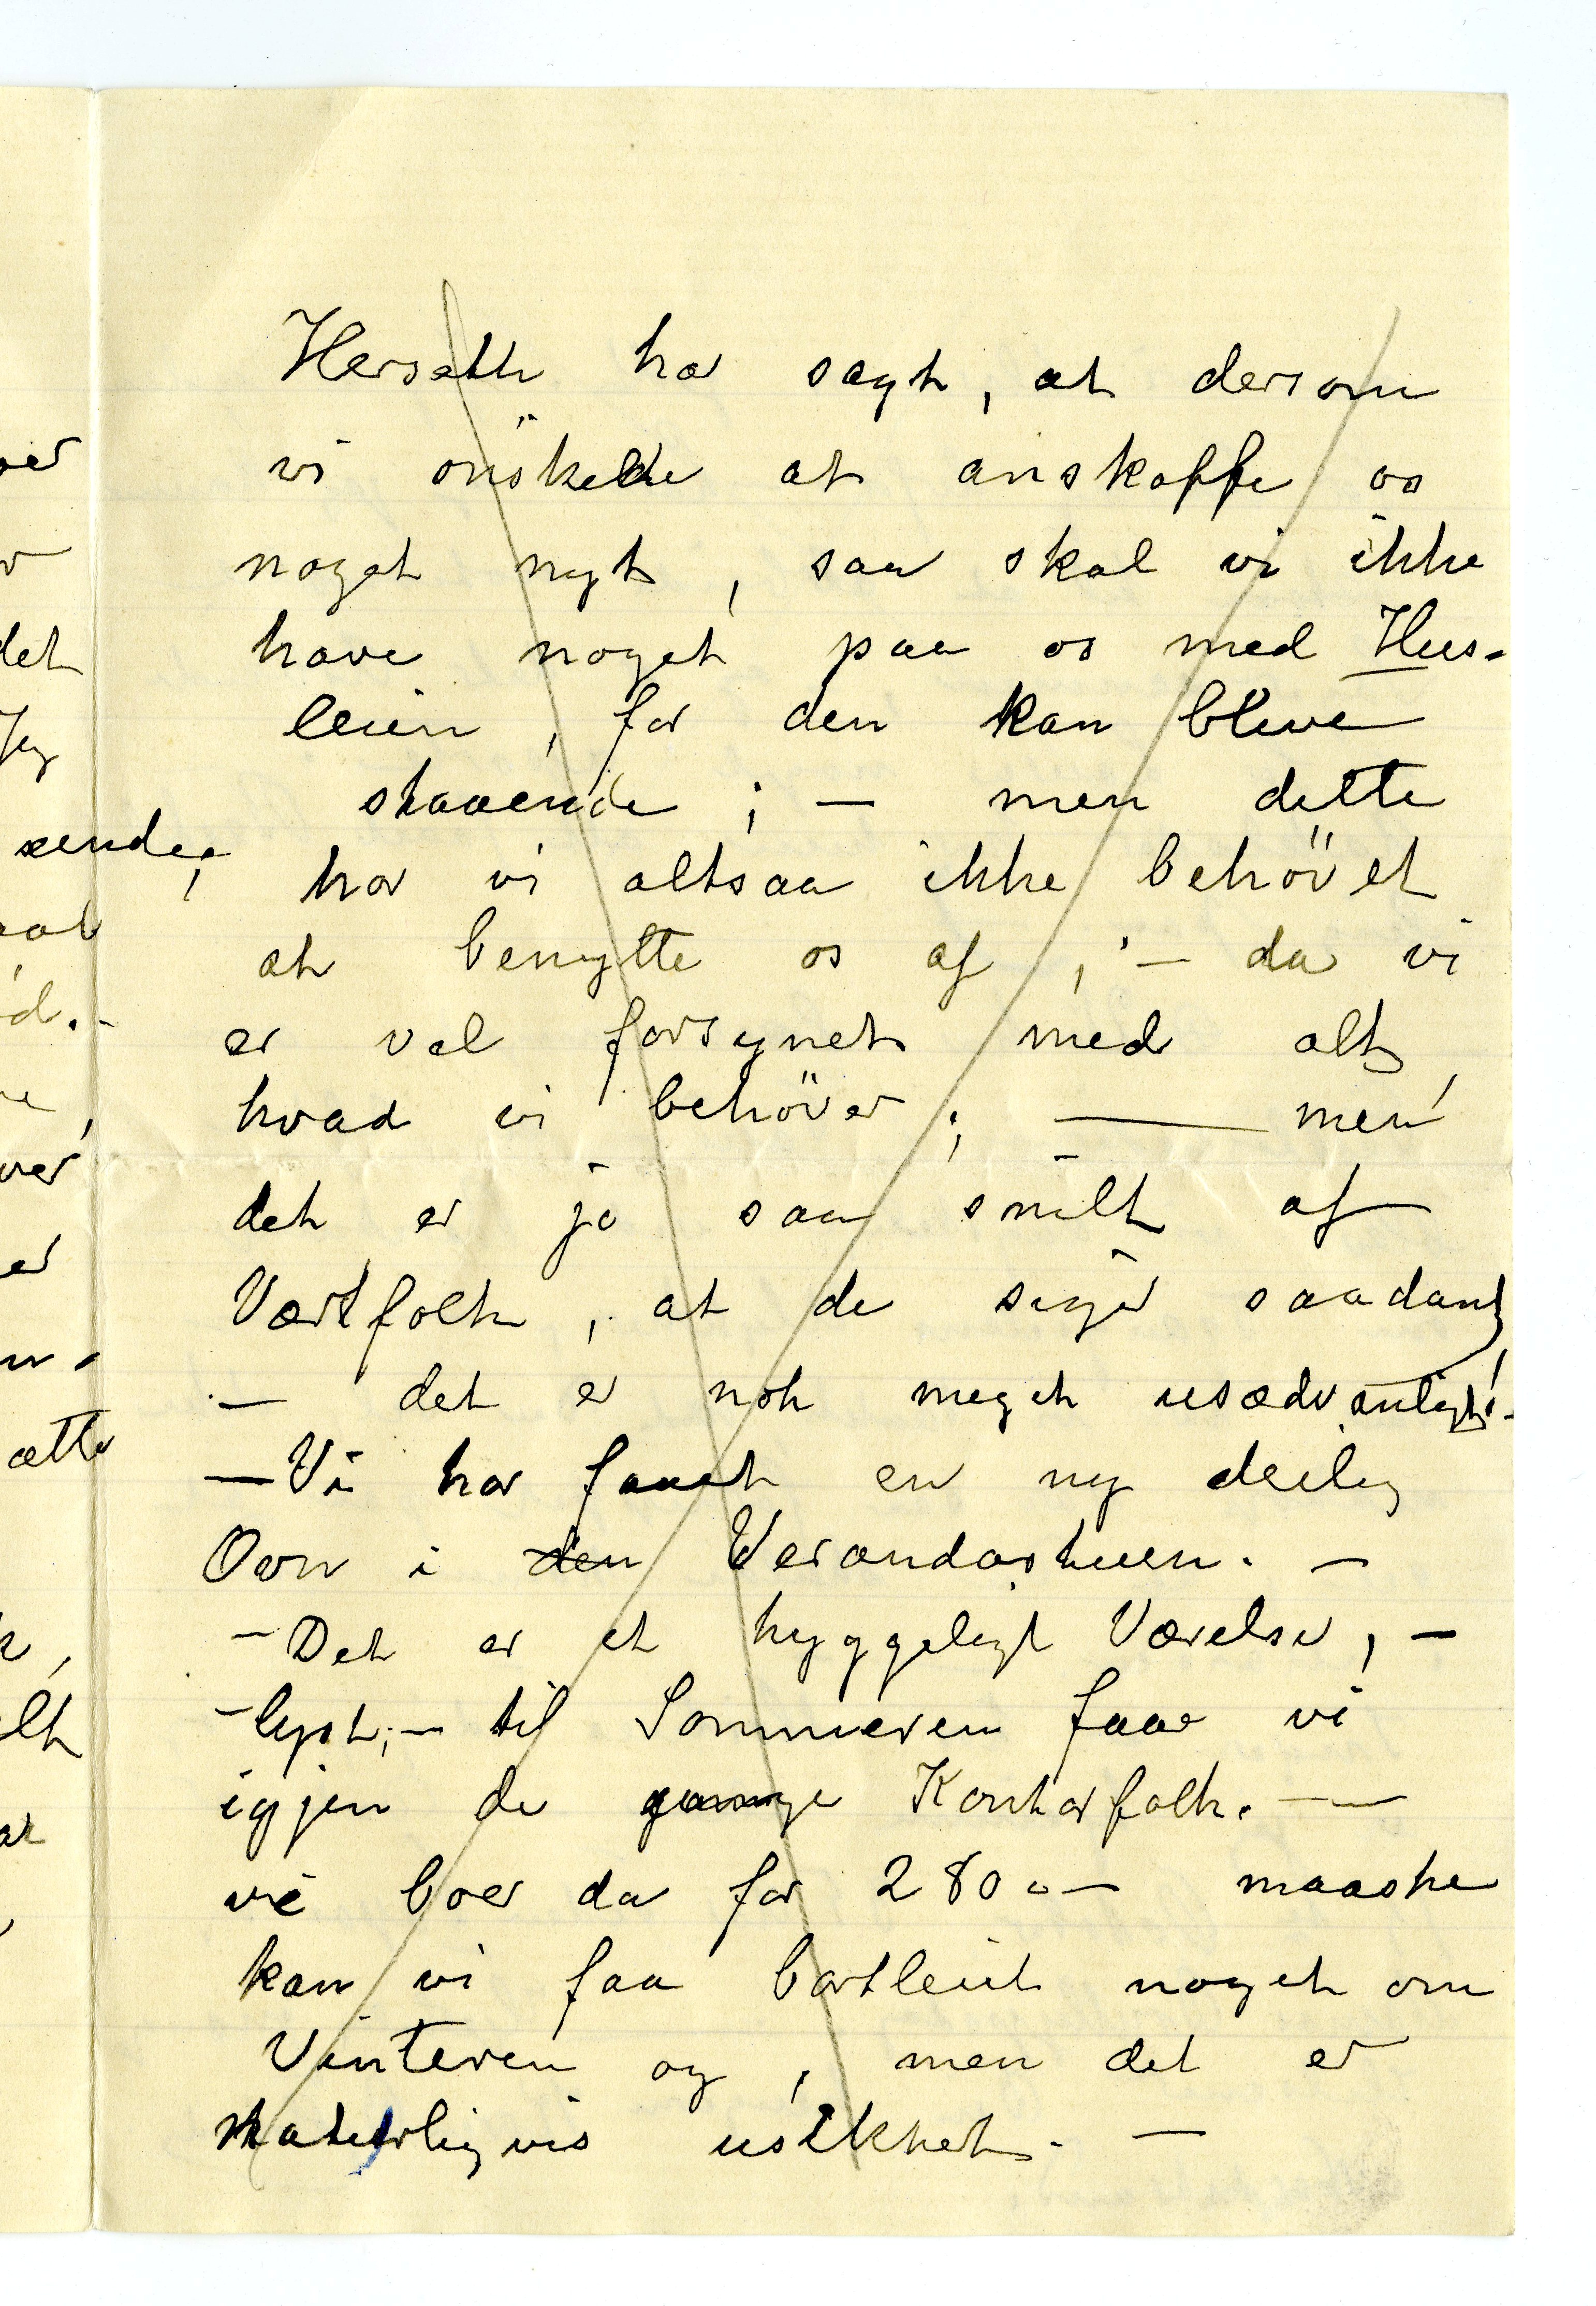 Herseth har sagt, at dersom
vi önskede at anskaffe os
noget nyt, saa skal vi ikke
have noget paa os med Hus-
leien, for den kan blive
staaende; — men dette
har vi altsaa ikke behövet
at benytte os af; — da vi
er vel forsynet med alt,
hvad vi behöver; — men
det er jo saa snilt af
Værtfolk, at de siger saadant,
— det er nok meget usædvanligt! -
— Vi har faaet en ny deilig
Ovn i den Verandastuen. —
— Det er et hyggeligt Værelse, —
— lyst; — til Sommeren faar vi
igjen de gamge Kontorfolk. —
vi boer da for 280 — maaske
kan vi faa bortleiet noget om
Vinteren og, men det er
naturligvis usikkert. —
det
Jeg
sender,
ætte